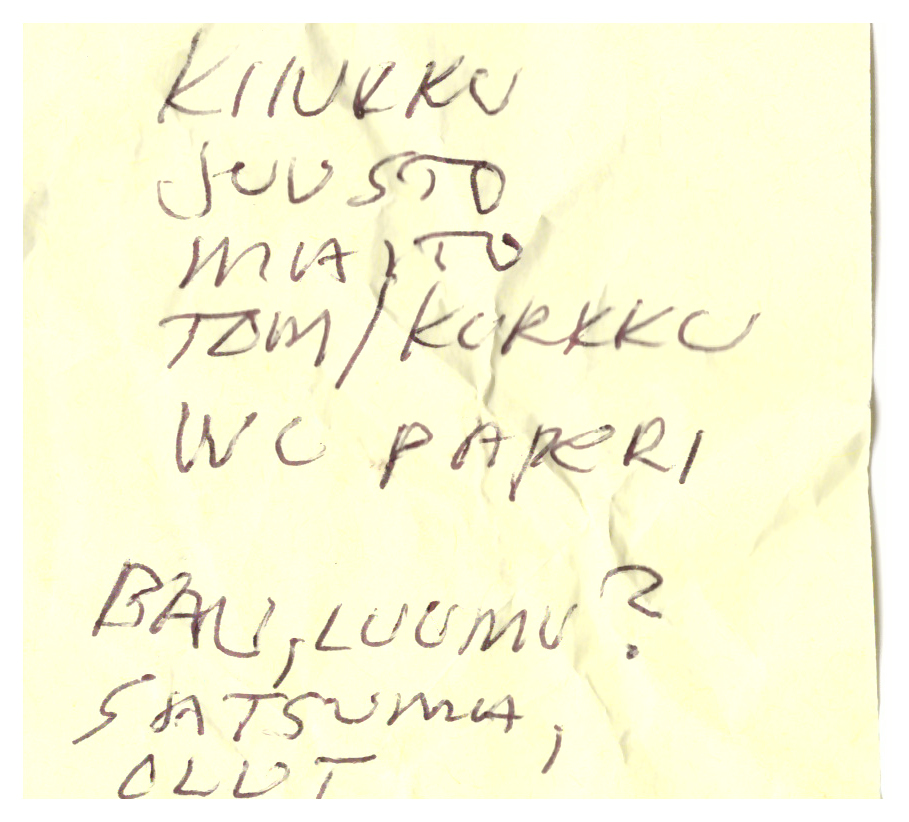 KIINKKU
JUUSTO
MAITO
TOM/KURKKU
WC PAPERI
BAN, LUUMU?
SATSUMA,
OLUT